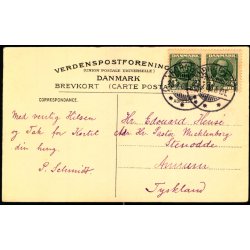 VERDENSPOSTFORENINGEN
(UNION POSTALE UNIVERSELLE)
DANMARK
BREVKORT (CARTE POSTALE)
CORRESPONDANCE.
Med venlig Hilsen
og Tak for Kortet
din
P. Schmidt
Hr. Edouard
Hr. Pastor Mecklenborg
Stenodde
Amrum
Tyskland